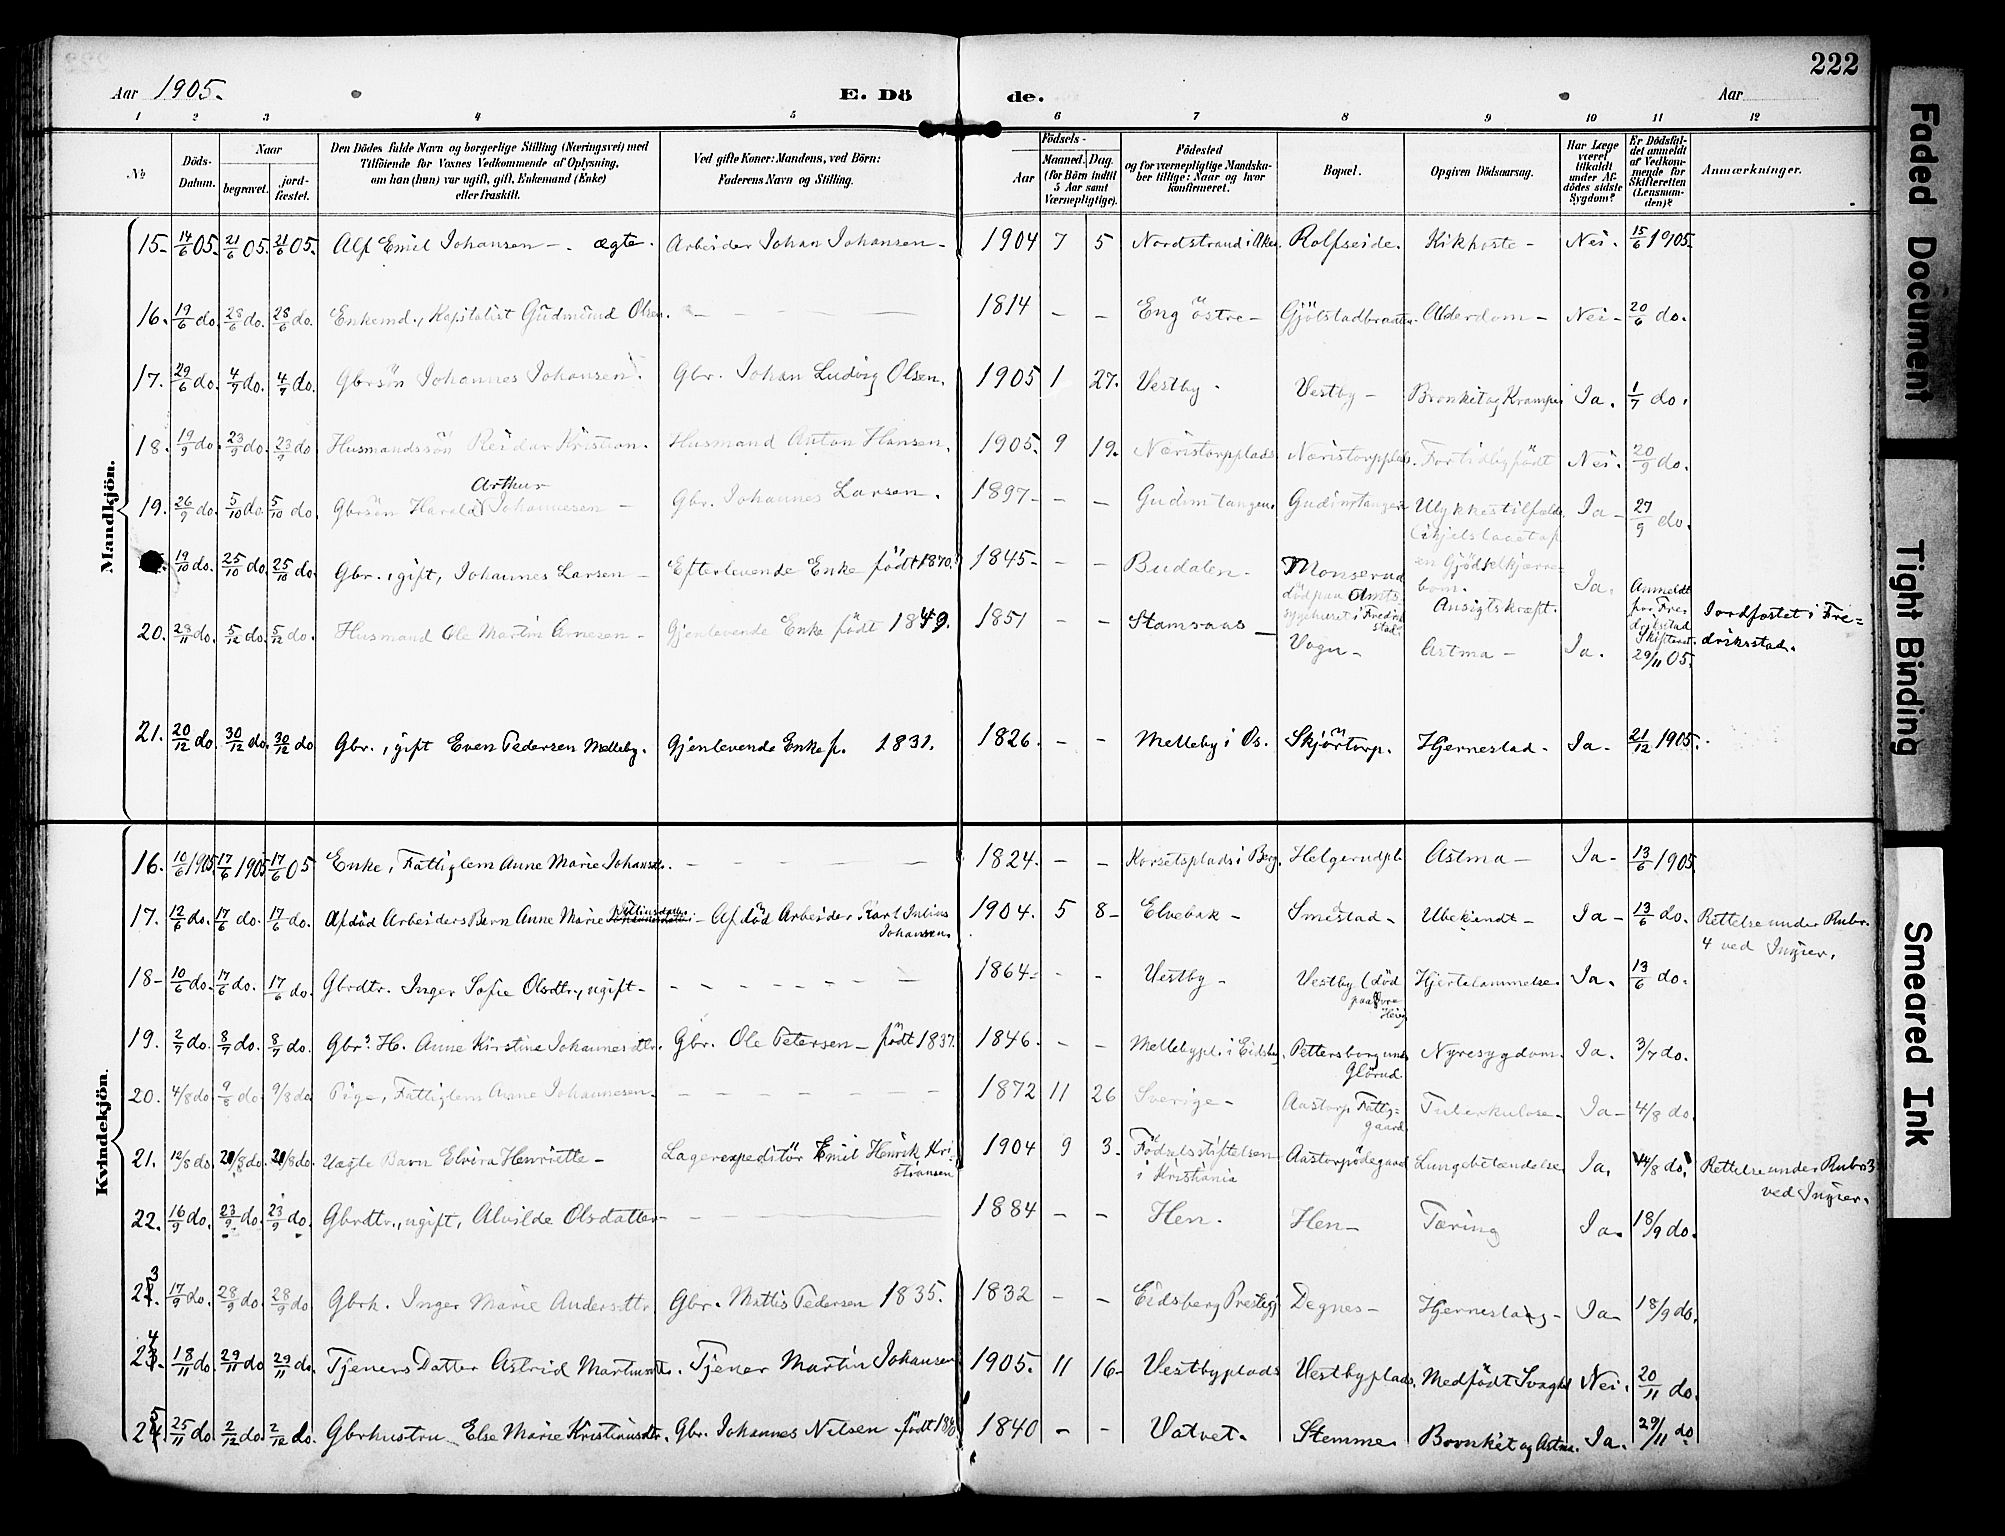 222
Aar 1905.
E. Döde.
Aar
1 2 3 4 5 6 7 8 9 10 11 12
No
Döds-Datum.
Naar
begravet.
jord-fæstet.
Den Dödes fulde Navn og borgerlige Stilling (Næringsvei) med
Tilföiende for Voxnes Vedkommende af Oplysning,
om han (hun) var ugift, gift, Enkemand (Enke)
eller fraskilt.
Ved gifte Koner: Mandens, ved Börn:
Faderens Navn og Stilling.
Födsels-
Aar
Maaned. Dag.
(for Börn indtil
5 Aar samt
Værnepligtige).
Födested
og for værnepligtige Mandska-
ber tillige: Naar og hvor
konfirmeret.
Bopæl.
Opgiven Dödsaarsag.
Har Læge
været
tilkaldt
under Af-
dödes sidste
Sygdom?
Er Dödsfal-
det anmeldt
af Vedkom-
mende for
Skifteretten
(Lensman-
den)?
Anmærkninger.
Mandkjön.
15- 14/6 05. 21/6 05. 21/6 05. Alf Emil Johansen -. ægte. Arbeider Johan Johansen - 1904 7 5 Nordstrand i Aker. Rolfseide. Kikhoste - Nei. 15/6 1905.
16. 19/6 do. 28/6 do. 28/6 do. Enkemd., Kapitalist Gudmund Olsen. - 1814 - - Eng östre - Gjölstadbraaten. Alderdom - Nei - 20/6 do.
17. 29/6 do. 4/7 do. 4/7 do. Gbrsön Johannes Johansen. Gbr. Johan Ludvig Olsen. 1905 1 27. Vestby. Vestby - Bronkit og Krampe Ja. 1/7 do.
18. 19/9 do. 23/9 do. 23/9 do Husmandssön Reidar Kristian. Husmand Anton Hansen. 1905. 9 19. Næristorpplads Næristorpplads. For tidlig födt Nei. 20/9 do.
Arthur
19. 26/9 do. 5/10 do. 5/10 do. Gbrsön Harald Johannesen - Gbr. Johannes Larsen. 1897- - - Gudimtangen. Gudimtangen Ulykkestilfælde Ja - 27/9 do.
(ihjelslaaet af
en Gjödselkjærre-
bom.
19/10 do. 25/10 do. 25/10 do. Gbr., gift, Johannes Larsen - Efterlevende Enke födt 1870. 1845- - - Budalen. Monserud
död paa Amts
sygehuset i Fredrik
stad. Ansigtskræft. Ja. Anmeldt
for Fre
drikstad
Skifteret.
29/11 05.
Jordfæstet i Fre=
drikstad.
20. 28/11 do. 5/12 do. 5/12 do. Husmand Ole Martin Arnesen - Gjenlevende Enke födt 1849. 1851 - - Stomsaas - Vogn - Astma - Ja.
21. 20/12 do. 30/12 do. 30/12 do Gbr., gift Even Pedersen Melleby. Gjenlevende Enke f. 1831. 1826. - - Melleby i Os. Skjörtorp. Hjerneslad - Ja - 21/12 1905.
Kvindekjön.
16. 10/6 1905. 17/6 1905 17/6 05 Enke, Fattiglem Anne Marie Johansdtr. - 1824. - - Korsetsplads i Berg. Helgerudpl. Astma - Ja - 13/6 1905
17. 12/6 do. 17/6 do. 17/6 do. Afdöd Arbeiders Barn Anne Marie - Afdöd Arbeider Karl Julius
Johansen. 1904. 5 8- Elvebak - Smestad - Ubekjendt - Ja - 13/6 do. Rettelse under Rubr.
4 ved Ingier.
18- 10/6 do. 17/6 do. 17/6 do. Gbrdtr. Inger Sofie Olsdtr., ugift - 1864- - - Vestby - Vestby (död
paa Övre Hjertelammelse. Ja. 13/6 do.
19. 2/7 do. 8/7 do. 8/7 do. Gbr. H. Anne Kirstine Johannesdtr. Gbr. Ole Petersen - födt 1837. 1846- - - Mellebypl. i Eidsbg. Pettersborg und.
Glörud. Nyresygdom. Ja. 3/7 do.
20. 4/8 do. 9/8 do. 9/8 do. Pige, Fattiglem Anne Johannesen - 1872 11 26 Sverige - Aastorp Fattig=
gaard. Tuberkulose - Ja - 4/8 do.
21. 12/8 do. 20/8 do. 20/8 do. Uægte Barn Elvira Henriette - Lagerexpeditör Emil Henrik Kri-
stiansen 1904 9 3- Födselsstiftelsen
i Kristiania Aastorpödegaard Lungebetændelse Ja. 14/8 do. Rettelse under Rubr 3
ved Ingier.
22. 16/9 do. 23/9 do. 23/9 do. Gbrdtr., ugift, Alvilde Olsdatter - 1884 - - Hen. Hen - Tæring Ja. 18/9 do.
23. 17/9 do. 28/9 do. 28/9 do. Gbrh. Inger Marie Andersdtr. Gbr. Mattis Pedersen 1835. 1832 - - Eidsberg Prestegj. Degnes - Hjerneslag - Ja - 18/9 do.
24. 18/11 do. 29/11 do 29/11 do. Tjeners Datter Astrid Martinsdtr. Tjener Martin Johansen 1905. 11 16- Vestbyplads Vestbyplads. Medfödt Svaghed Nei. 20/11 do.
25 25/11 do 2/12 do. 2/12 do. Gbrhustru Else Marie Kristiansdtr. Gbr. Johannes Nilsen. födt 1840 - - Vatvet. Stemme. Bronkit og Astma. Ja. 29/11 do
Faded Document
Tight Binding
Smeared Ink